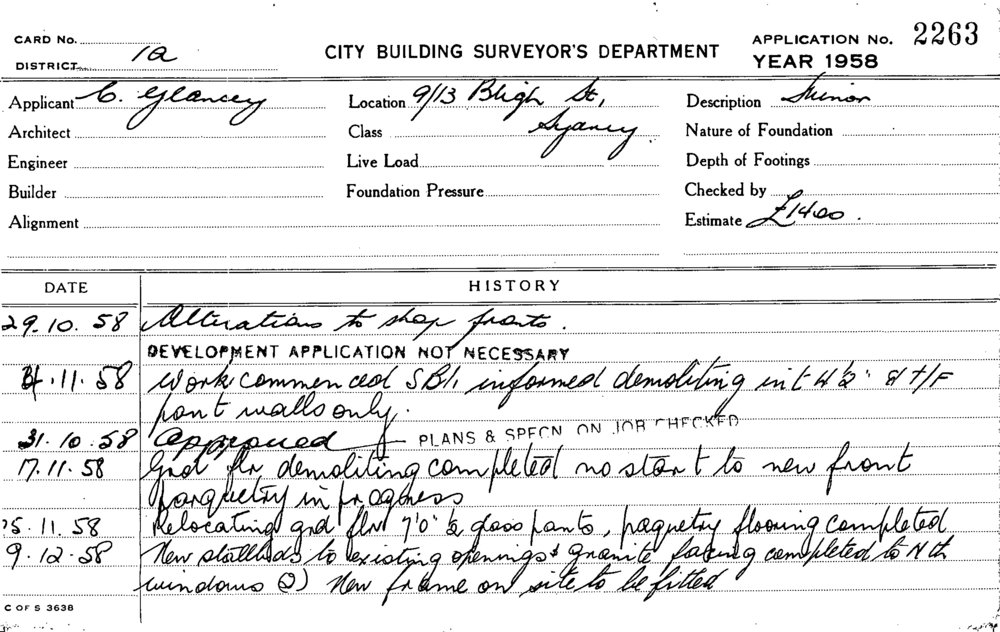 CARD No.
DISTRICT 1a
CITY BUILDING SURVEYOR'S DEPARTMENT
APPLICATION No. 2263
YEAR 1958
Applicant C. Glancey
Location 9/13 Bligh St,
Sydney
Description Minor
Architect
Class
Nature of Foundation
Engineer
Live Load
Depth of Footings
Builder
Foundation Pressure
Checked by
Alignment
Estimate £1400.
DATE
HISTORY
29.10.58 Alterations to shop fronts.
DEVELOPMENT APPLICATION NOT NECESSARY
4.11.58 Work commenced SBI, informed demoliting int 4½" & T/F
pant walls only.
31.10.58 Approved PLANS & SPECN ON JOB CHECKED
17.11.58 Grd flr demoliting completed no start to new front
parquetry in progress
5.11.58 Relocating grd flr 7'0" glass pants, paquetry flooring completed
9.12.58 New stallbds to existing openings & granite facing completed to Nth
windows (2) New frame on site to be fitted
C OF S 3638